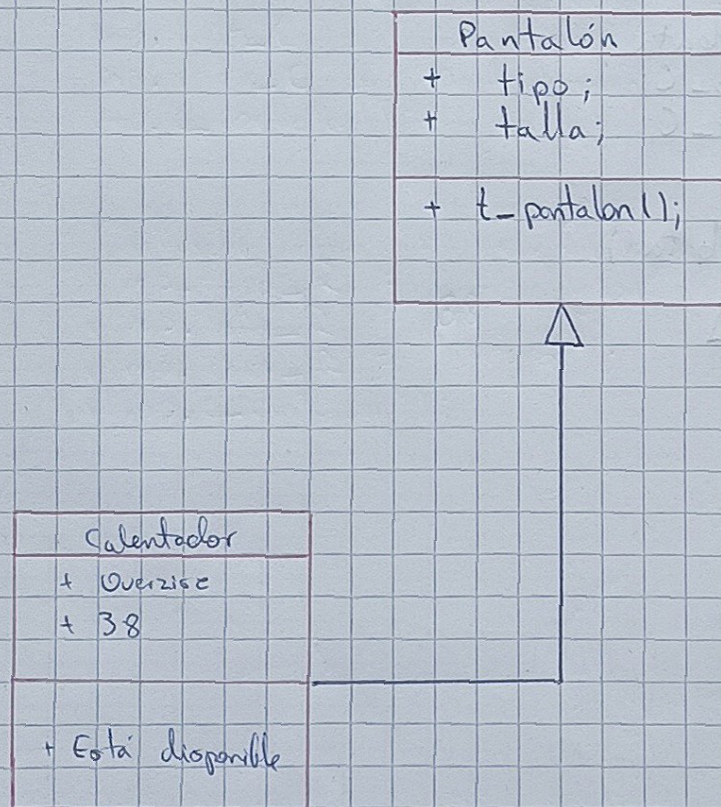 Pantalón
+ tipo;
+ talla;
+ t_pantalon();
Calentador
+ Overzise
+ 38
+ Está disponible